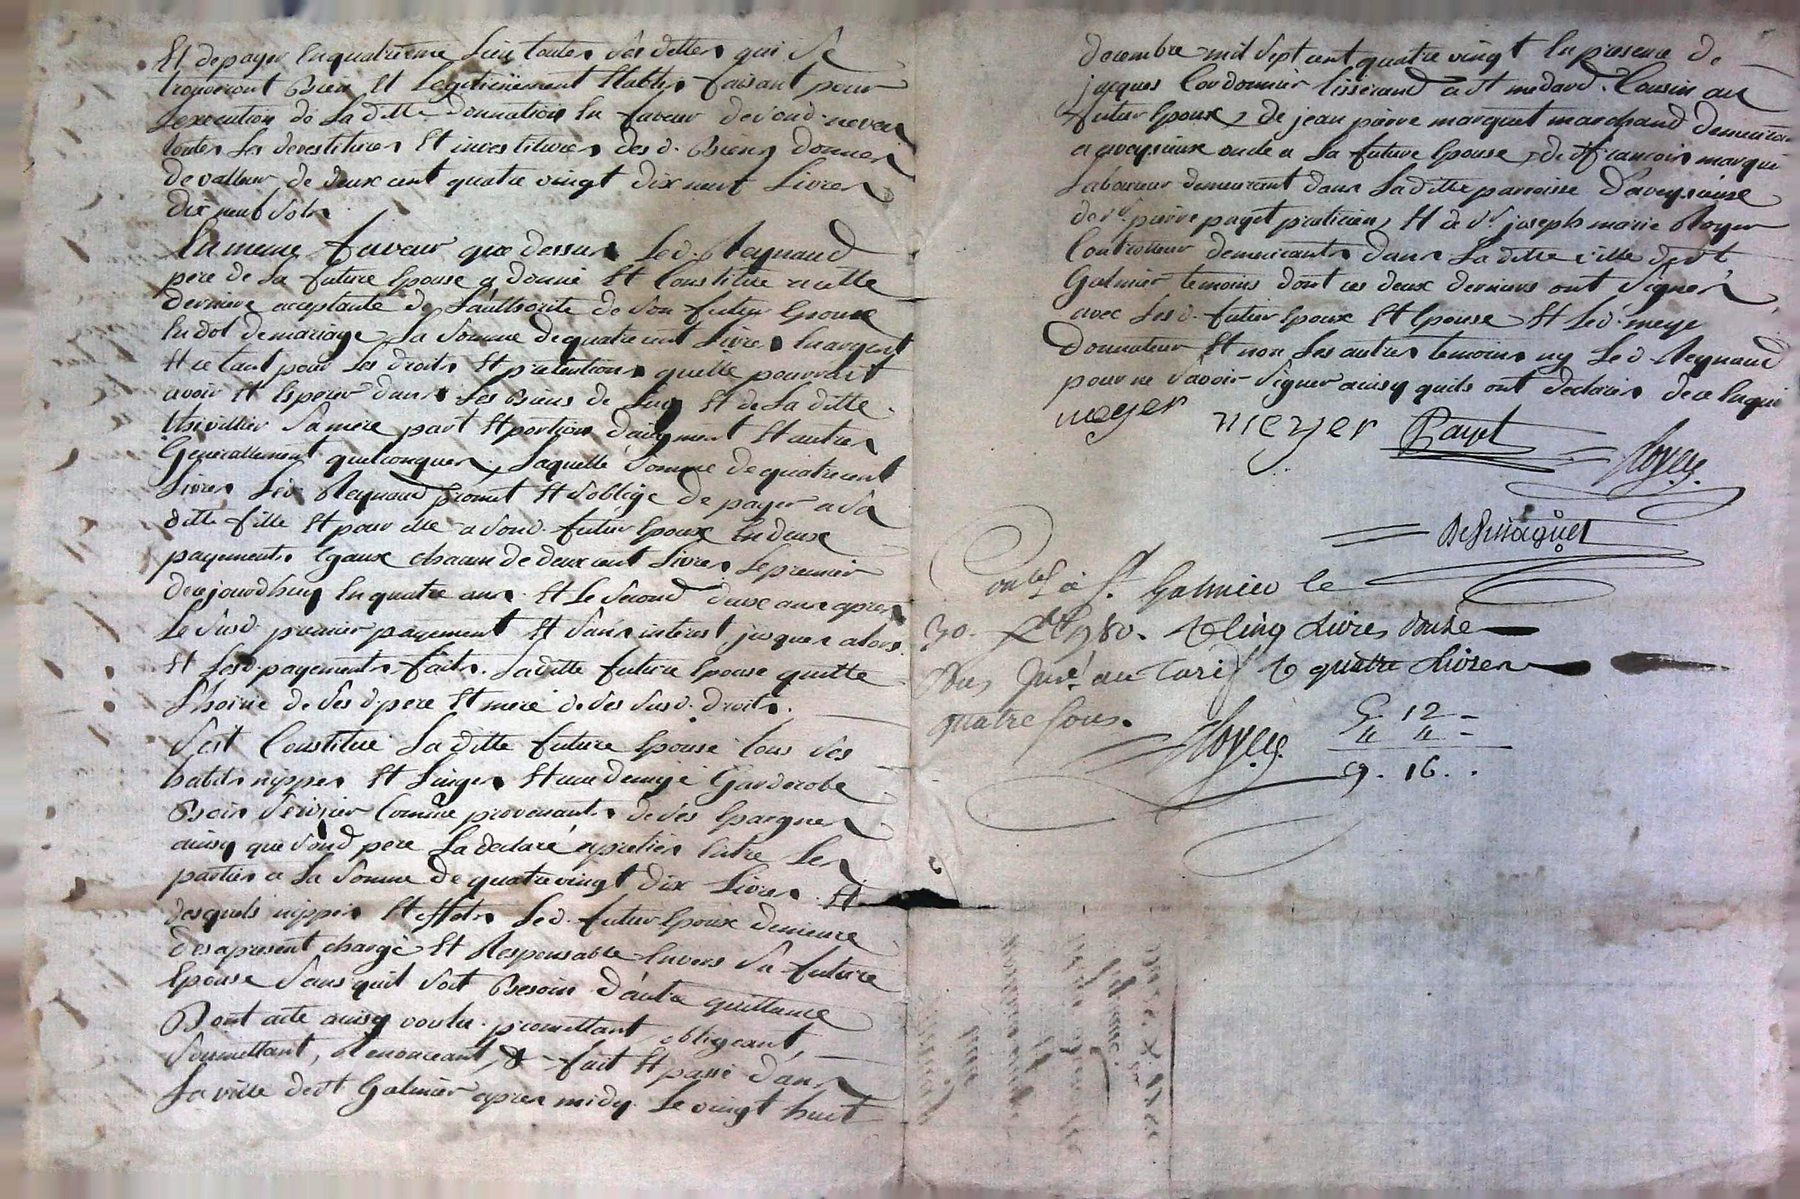 Et de payer En quatrieme Lieu toutes Ses dettes qui Se
trouveront Bien Et Legitimement Etablies faisant pour
Lexecution de La ditte donnation En faveur de sond. neveu
toutes Les devestitures Et investitures des d. Biens donnes
de valleur de deux cent quatre vingt dix neuf Livres
dix neuf Sols
En meme faveur que dessus Led. Reynaud
pere de La future Epouse a donné Et Constitué a cette
derniere acceptante de Lauthorite de Son futur Epoux
En dot de mariage La Somme de quatre cent Livres En argent
Et ce tant pour Les droits Et pretentions quelle pourroit
avoir Et Esperer dans Les Biens de Luy Et de La ditte
thevillier Sa mere part Et portion daugment Et autres
Generallement quelconques, Laquelle Somme de quatre cent
Livres Led. Reynaud promet Et Soblige de payer a Sa
ditte fille Et pour elle a Sond. futur Epoux En deux
payements Egaux chacun de deux cent Livres Le premier
dez ajourdhuy En quatre ans Et Le Second deux ans apres
Le Susd. premier payement Et Sans interest jusques alors
Et Lesd. payements faits. Laditte future Epouse quitte
Lhoirie de Ses d. pere Et mere de Ses Susd. droits.
Sest Constitué La ditte future Epouse tous Ses
habits nippes Et Linges Et une demye Garderobe
Bois Serisier Comme provenants de Ses Epargnes
ainsy que Sond pere La declaré apretiés Entre Les
parties a La Somme de quatre vingt dix Livres. Et
desquels nippes Et Effets Led. futur Epoux demeure
des apresent chargé Et Responsable Envers Sa future
Epouse Sans quil Soit Besoin dautre quittance
Dont acte ainsy voulu. promettant, obligeant,
Soumettant, Renonceant, & fait Et passé dans
La ville de St Galmier apres midy Le vingt huit
decembre mil Sept cent quatre vingt En presence de
jacques Cordonnier tisserand a St medard Cousin au
futur Epoux, de jean pierre marquet marchand demeurant
a aveysieux oncle a La future Epouse, de francois marque
Laboureur demeurant dans Laditte parroisse daveysieux
de Sr. pierre payet praticien, Et de Sr. joseph marie Royer
Controlleur demeurants dans La ditte ville de St
Galmier temoins dont ces deux derniers ont Signés
avec Lesd. futur Epoux Et Epouse Et Led. meyer
Donnateur Et non Les autres temoins ny Led. Reynaud
pour ne Savoir Signer ainsy quils ont declarés de ce Enquis
meyer meyer Payet
Royer
Conlé à St. Galmier le
30. Xbre 1780. R Cinq Livres douze
Sous Jnsé. au Tarif R quatre Livres
quatre sous. Royer
5 12 -
4 4 -
9. 16.